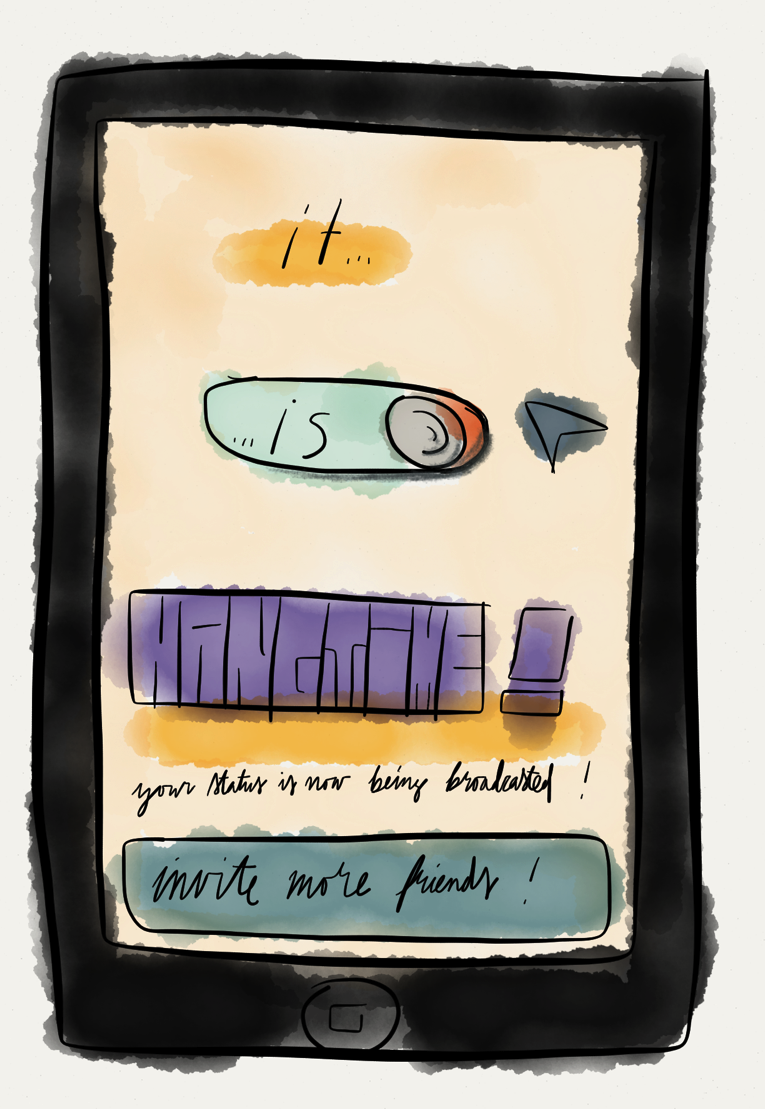 it...
...is
HANGTIME!
your status is now being broadcasted !
invite more friends !